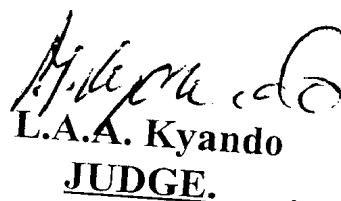 L.A.A. Kyando
JUDGE.